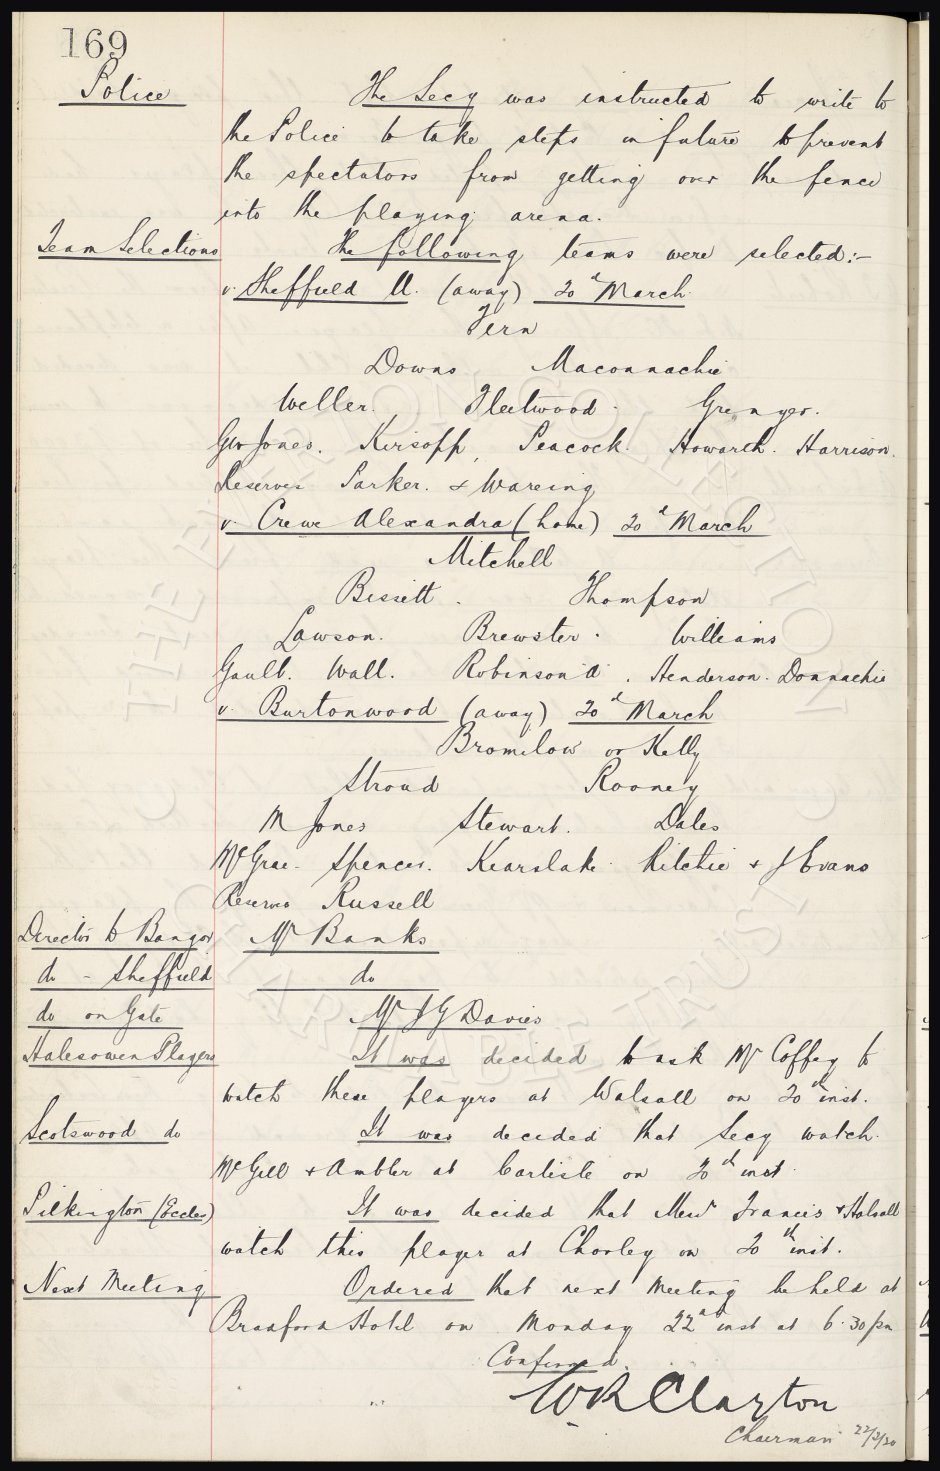 169
Police
The Secy was instructed to write to
the Police to take steps in future to prevent
the spectators from getting over the fence
into the playing arena.
Team Selections
The following teams were selected:-
v. Sheffield U. (away) 20th March
Fern
Downs Maconnachie
Weller. Fleetwood. Grenyer.
Geo Jones. Kirsopp, Peacock. Howarth. Harrison.
Reserves Parker. & Wareing
v. Crewe Alexandra (home) 20th March
Mitchell
Bissett. Thompson
Lawson. Brewster. Williams
Gault. Wall. Robinson A. Henderson. Donnachie
v. Burtonwood (away) 20th March
Bromilow or Kelly
Stroud Rooney
M Jones Stewart. Dales
McGrae. Spencer. Kearslake. Ritchie & J Evans
Reserve Russell
Director to Bangor Mr Banks
do - Sheffield do
do on Gate Mr J G Davies
Halesowen Players It was decided to ask Mr Coffey to
watch these players at Walsall on 20th inst.
Scotswood do It was decided that Secy watch
McGill & Ambler at Carlisle on 20th inst.
Pilkington (Eccles) It was decided that Messrs Francis & Halsall
watch this player at Chorley on 20th inst.
Next Meeting Ordered that next Meeting be held at
Bradford Hotel on Monday 22nd inst at 6.30 pm
Confirmed.
W R Clayton
Chairman 22/3/20
THE EVERTON COLLECTION
CHARITABLE TRUST